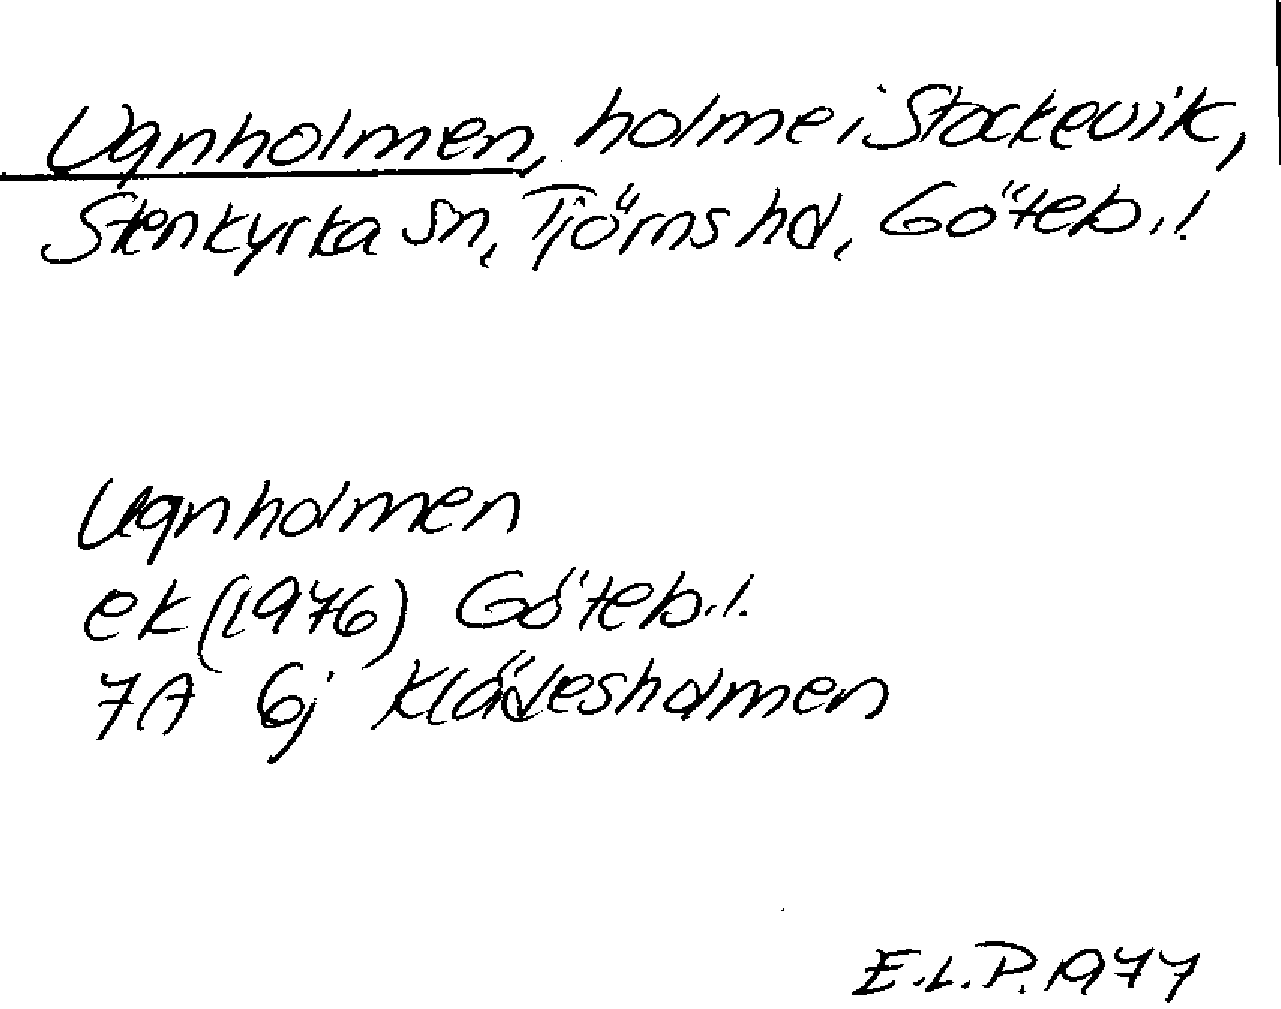 Ugnholmen, holme i Stockevik,
Stenkyrka sn, Tjörns hd, Göteb. l.
Ugnholmen
ek (1976) Göteb. l.
7A 6j Klädesholmen
E.L.P. 1977